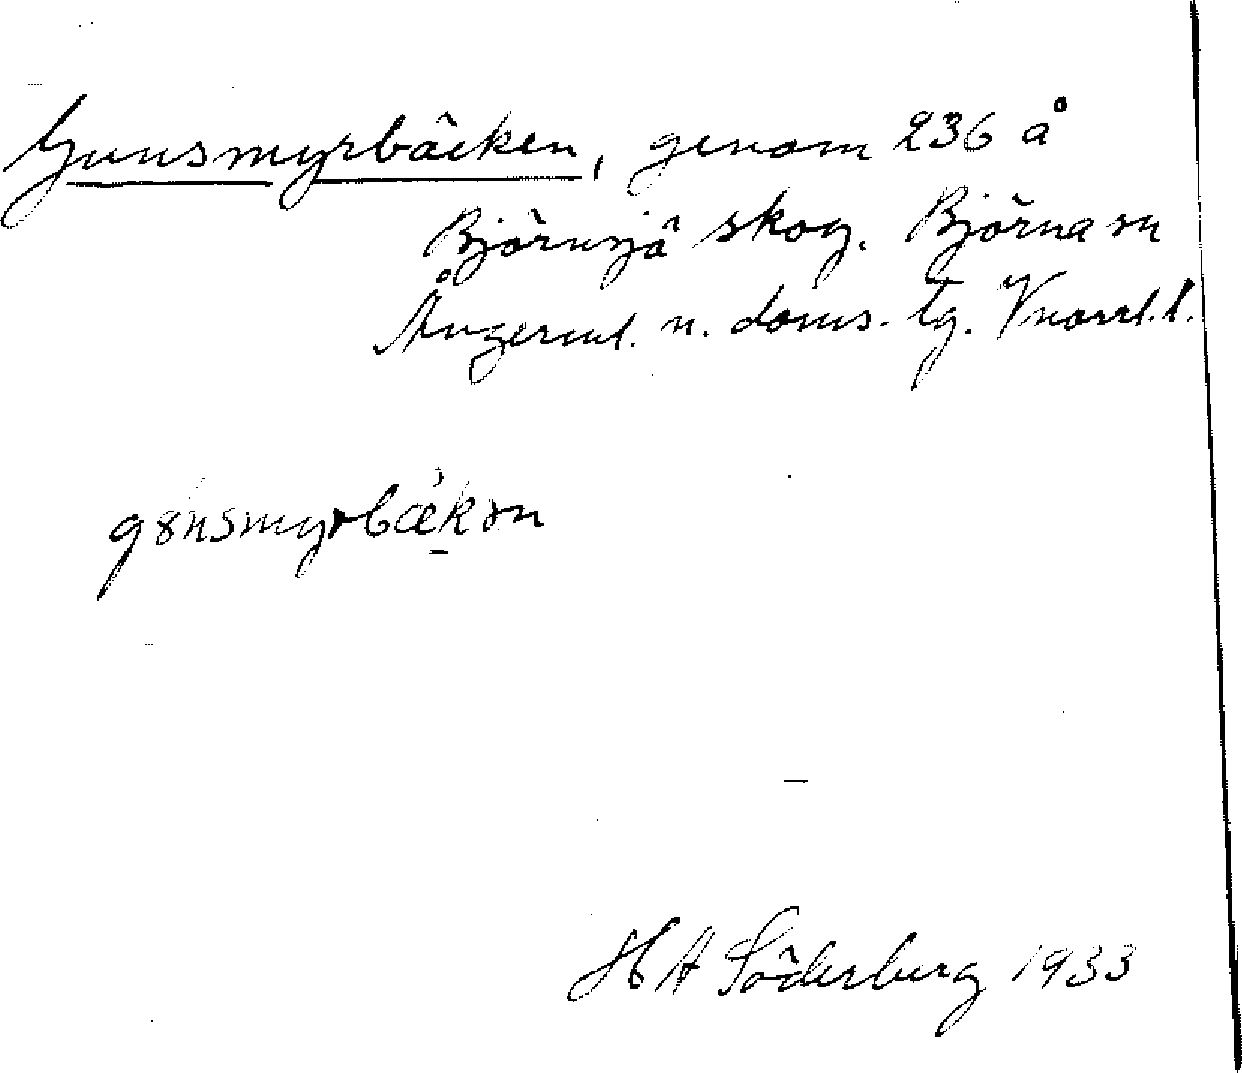 Gunsmyrbäcken, genom 236 å
Björnsjö skog. Björna sn
Ångerml. n. doms. tg. Vnorrl. l.
gɵnsmyrbækən
H A Söderberg 1933